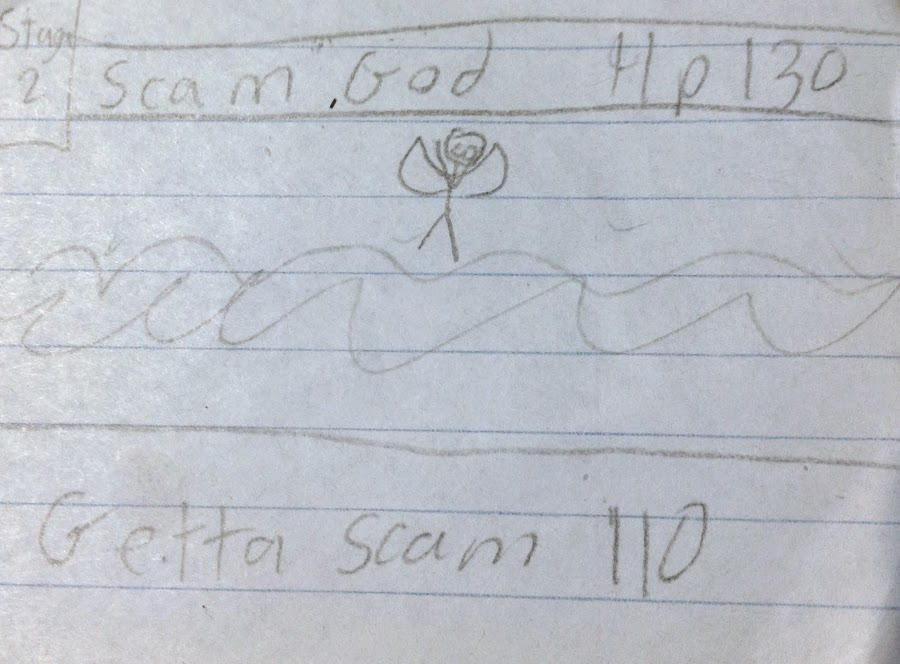 Stage
2
Scam God Hp 130
Getta scam 110